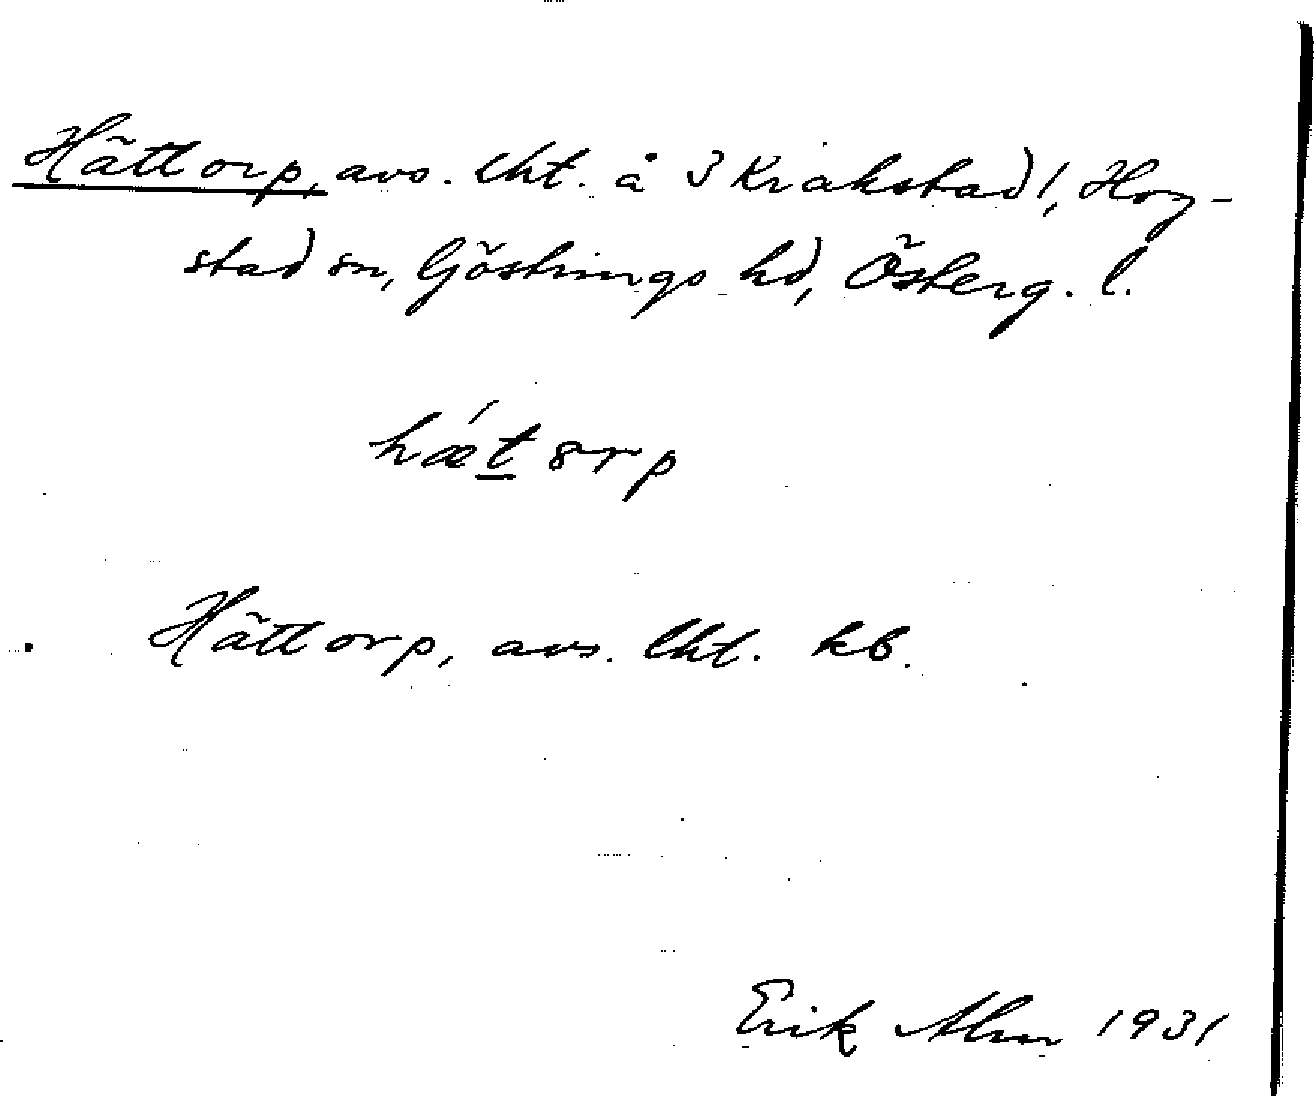 Hättorp, avs. lht. å 3 Krakstad!, Hog-
stad sn, Göstrings hd, Österg. l.
hǽt ɤrp
Hättorp, avs. lht. kb.
Erik Alm 1931